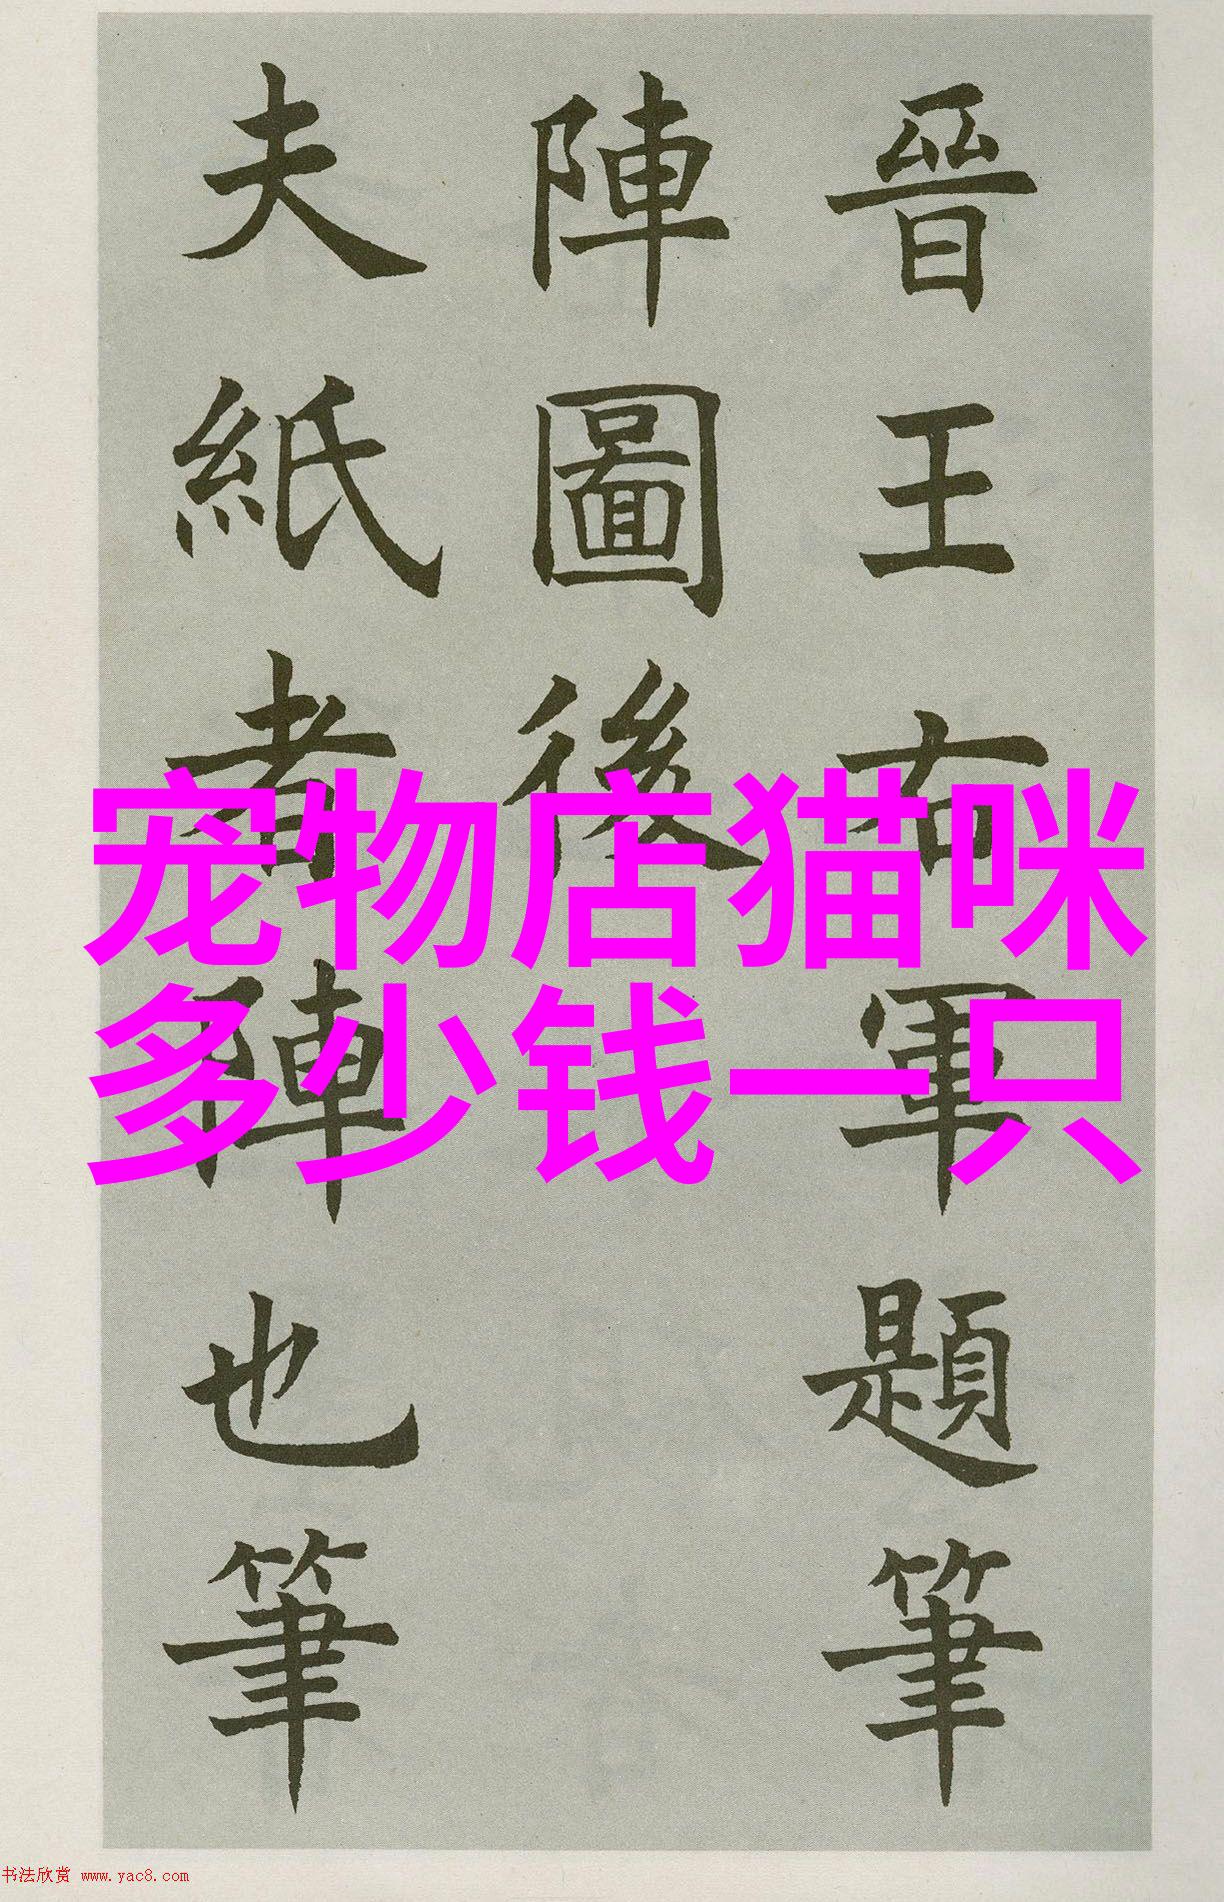 晉王右軍題筆
陣圖後
夫紙者陣也筆
宠物店猫咪
多少钱一只
书法欣赏 www.yac8.com